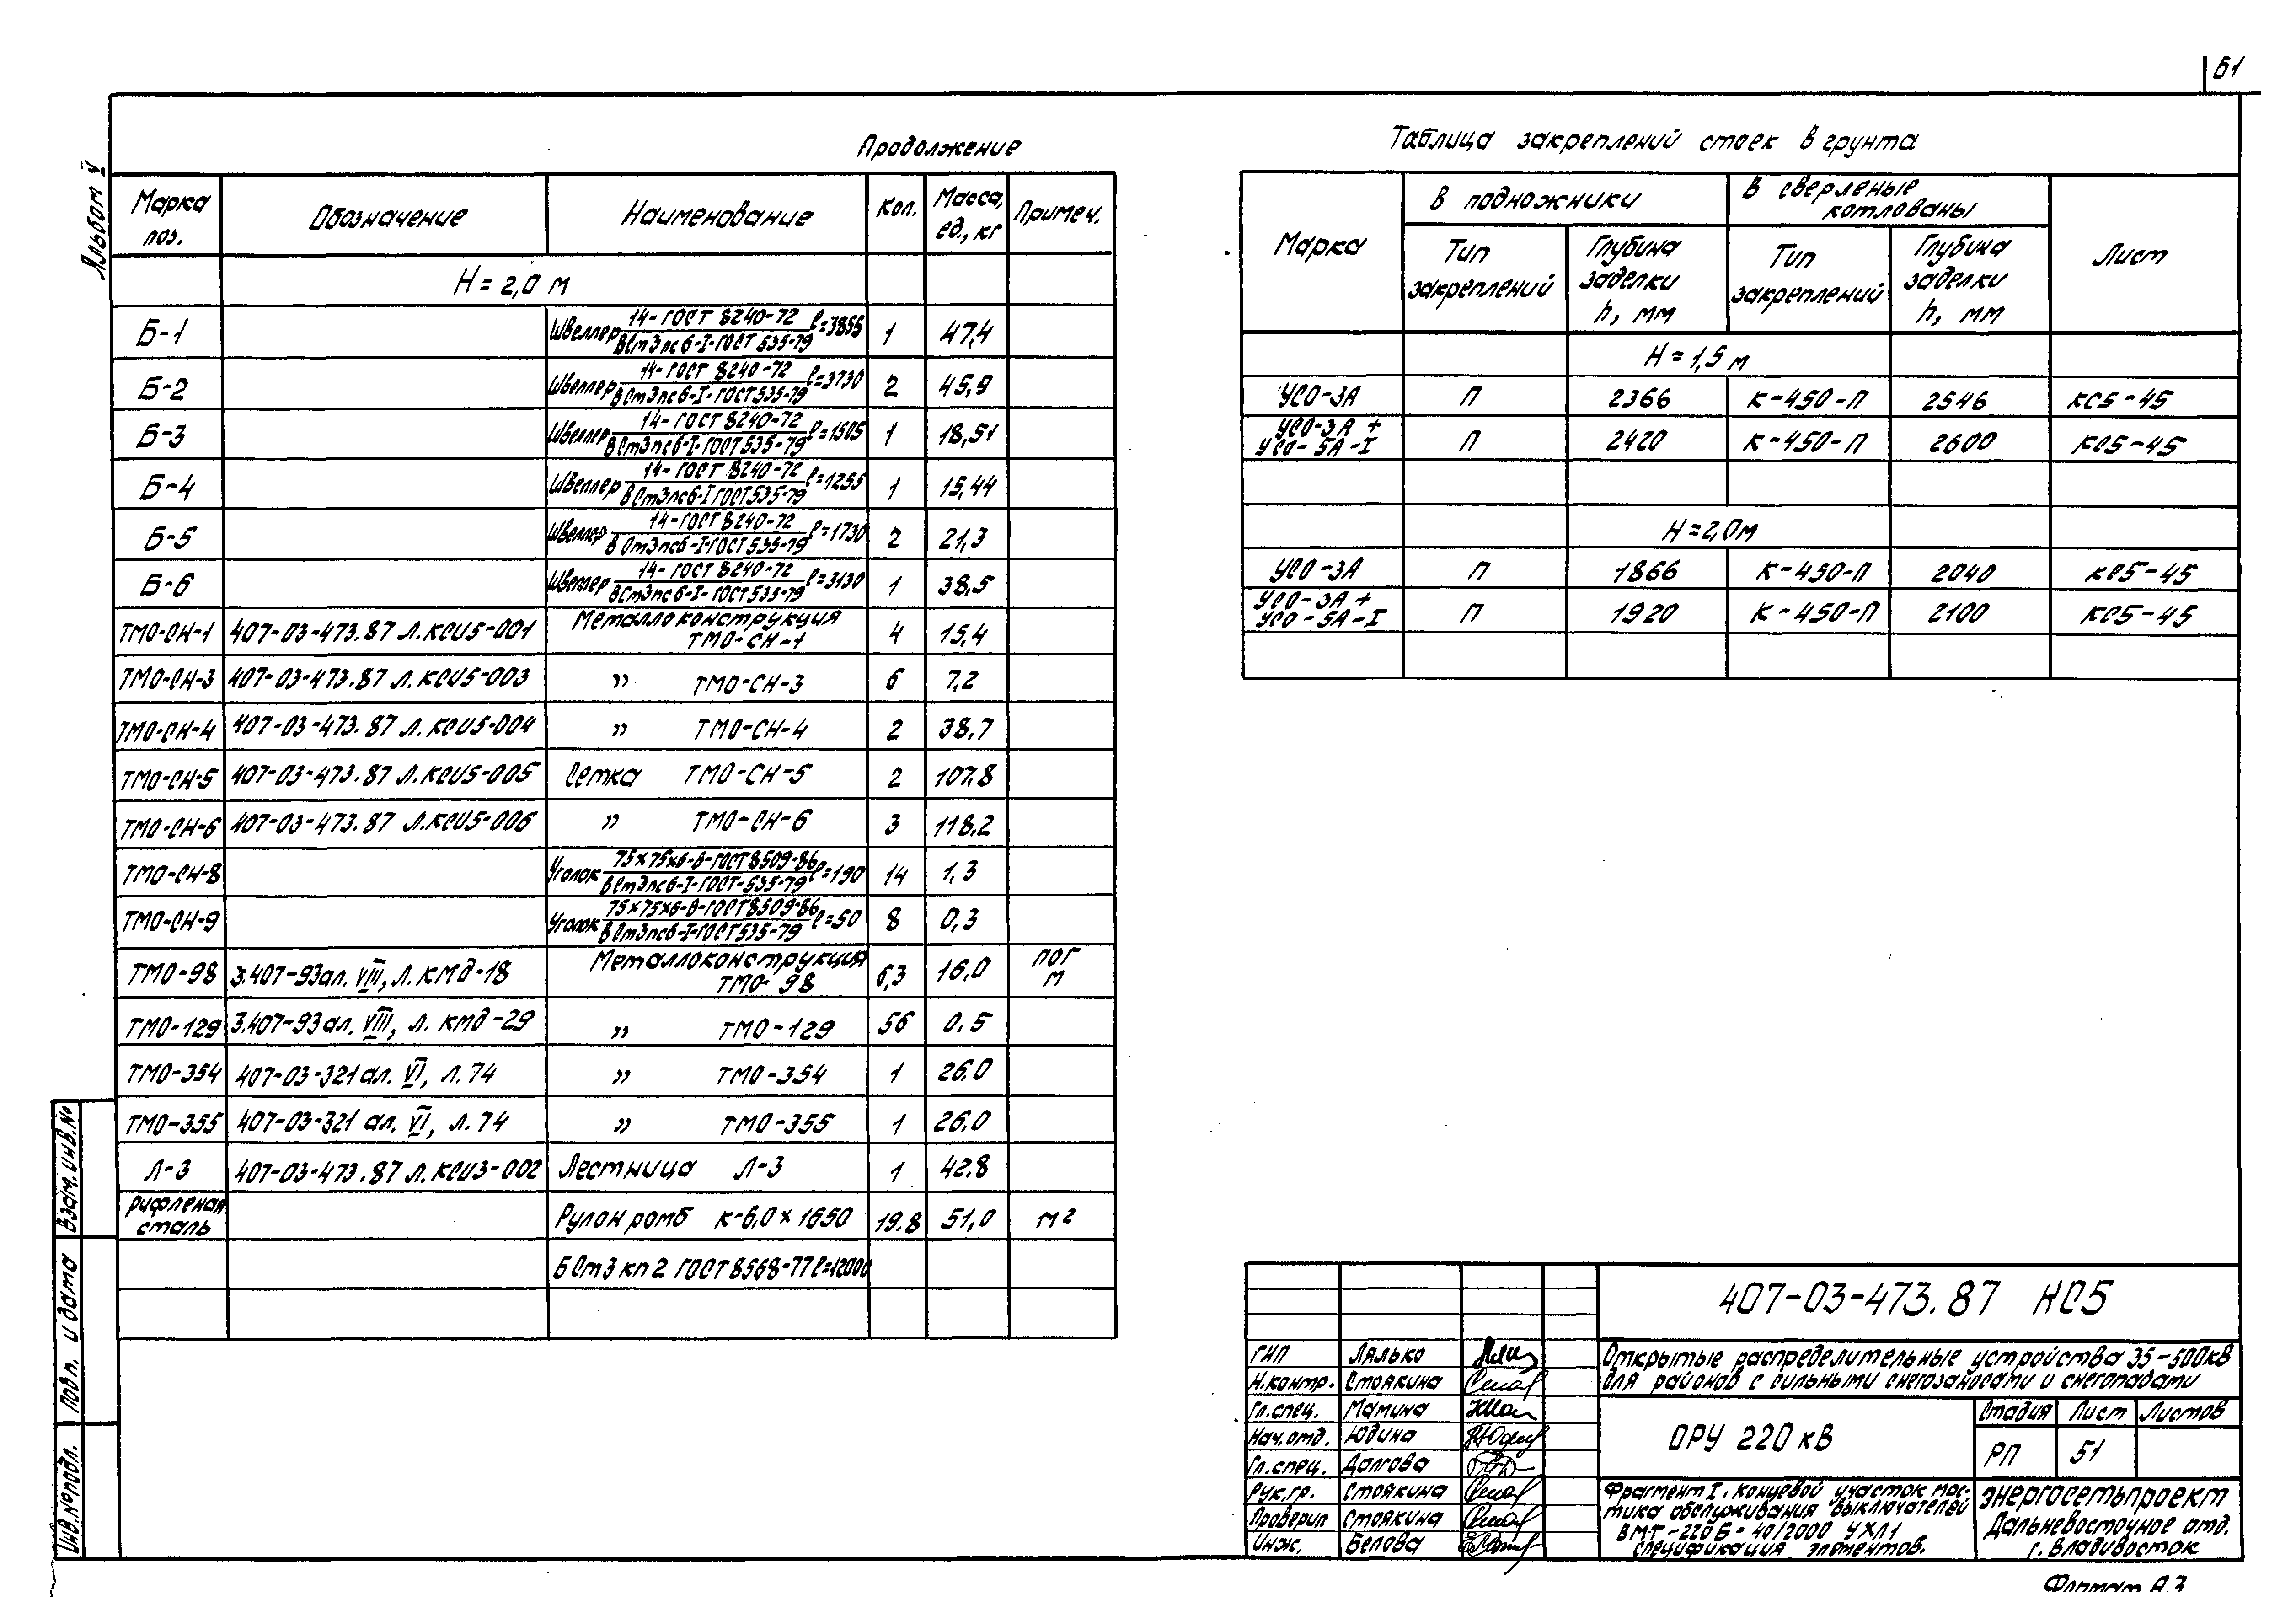 61
Альбом V
Продолжение
Марка поз. Обозначение Наименование Кол. Масса, ед., кг Примеч.
H = 2,0 м
Б-1 Швеллер 14-ГОСТ 8240-72 / ВСт3пс6-I-ГОСТ 535-79 ℓ=3855 1 47,4
Б-2 Швеллер 14-ГОСТ 8240-72 / ВСт3пс6-I-ГОСТ 535-79 ℓ=3730 2 45,9
Б-3 Швеллер 14-ГОСТ 8240-72 / ВСт3пс6-I-ГОСТ 535-79 ℓ=1505 1 18,51
Б-4 Швеллер 14-ГОСТ 8240-72 / ВСт3пс6-I ГОСТ 535-79 ℓ=1255 1 15,44
Б-5 Швеллер 14-ГОСТ 8240-72 / ВСт3пс6-I-ГОСТ 535-79 ℓ=1730 2 21,3
Б-6 Швеллер 14-ГОСТ 8240-72 / ВСт3пс6-I-ГОСТ 535-79 ℓ=3130 1 38,5
ТМО-СН-1 407-03-473.87 л. КСИ5-001 Металлоконструкция ТМО-СН-1 4 15,4
ТМО-СН-3 407-03-473.87 л. КСИ5-003 " ТМО-СН-3 6 7,2
ТМО-СН-4 407-03-473.87 л. КСИ5-004 " ТМО-СН-4 2 38,7
ТМО-СН-5 407-03-473.87 л. КСИ5-005 Сетка ТМО-СН-5 2 107,8
ТМО-СН-6 407-03-473.87 л. КСИ5-006 " ТМО-СН-6 3 118,2
ТМО-СН-8 Уголок 75×75×6-В-ГОСТ 8509-86 / ВСт3пс6-I-ГОСТ-535-79 ℓ=190 14 1,3
ТМО-СН-9 Уголок 75×75×6-В-ГОСТ 8509-86 / ВСт3пс6-I-ГОСТ 535-79 ℓ=50 8 0,3
ТМО-98 3.407-93 ал. VIII, л. КМД-18 Металлоконструкция ТМО-98 6,3 16,0 пог м
ТМО-129 3.407-93 ал. VIII, л. КМД-29 " ТМО-129 56 0.5
ТМО-354 407-03-321 ал. VI, л. 74 " ТМО-354 1 26.0
ТМО-355 407-03-321 ал. VI, л. 74 " ТМО-355 1 26.0
Л-3 407-03-473.87 л. КСИ3-002 Лестница Л-3 1 42.8
рифленая сталь Рулон ромб К-6,0×1650 19.8 51,0 м²
БСт3кп2 ГОСТ 8568-77 ℓ=12000
Таблица закреплений стоек в грунта
Марка В подножники В сверленые котлованы Лист
Тип закреплений Глубина заделки h, мм Тип закреплений Глубина заделки h, мм
H = 1,5 м
УСО-3А П 2366 К-450-П 2546 КС5-45
УСО-3А + УСО-5А-I П 2420 К-450-П 2600 КС5-45
H = 2,0 м
УСО-3А П 1866 К-450-П 2040 КС5-45
УСО-3А + УСО-5А-I П 1920 К-450-П 2100 КС5-45
407-03-473.87 КС5
Открытые распределительные устройства 35-500кВ
для районов с сильными снегозаносами и снегопадами
ГИП Лялько
Н.контр. Стоякина
Гл.спец. Мамина
Нач.отд. Юдина
Гл.спец. Долгова
Рук.гр. Стоякина
Проверил Стоякина
Инж. Белова
ОРУ 220 кВ
Стадия Лист Листов
РП 51
Фрагмент I. Концевой участок мос-
тика обслуживания выключателей
ВМТ-220Б-40/2000 УХЛ1
спецификация элементов.
Энергосетьпроект
Дальневосточное отд.
г. Владивосток
Формат А.3
Взам. инв.№
Подп. и дата
Инв.№ подл.